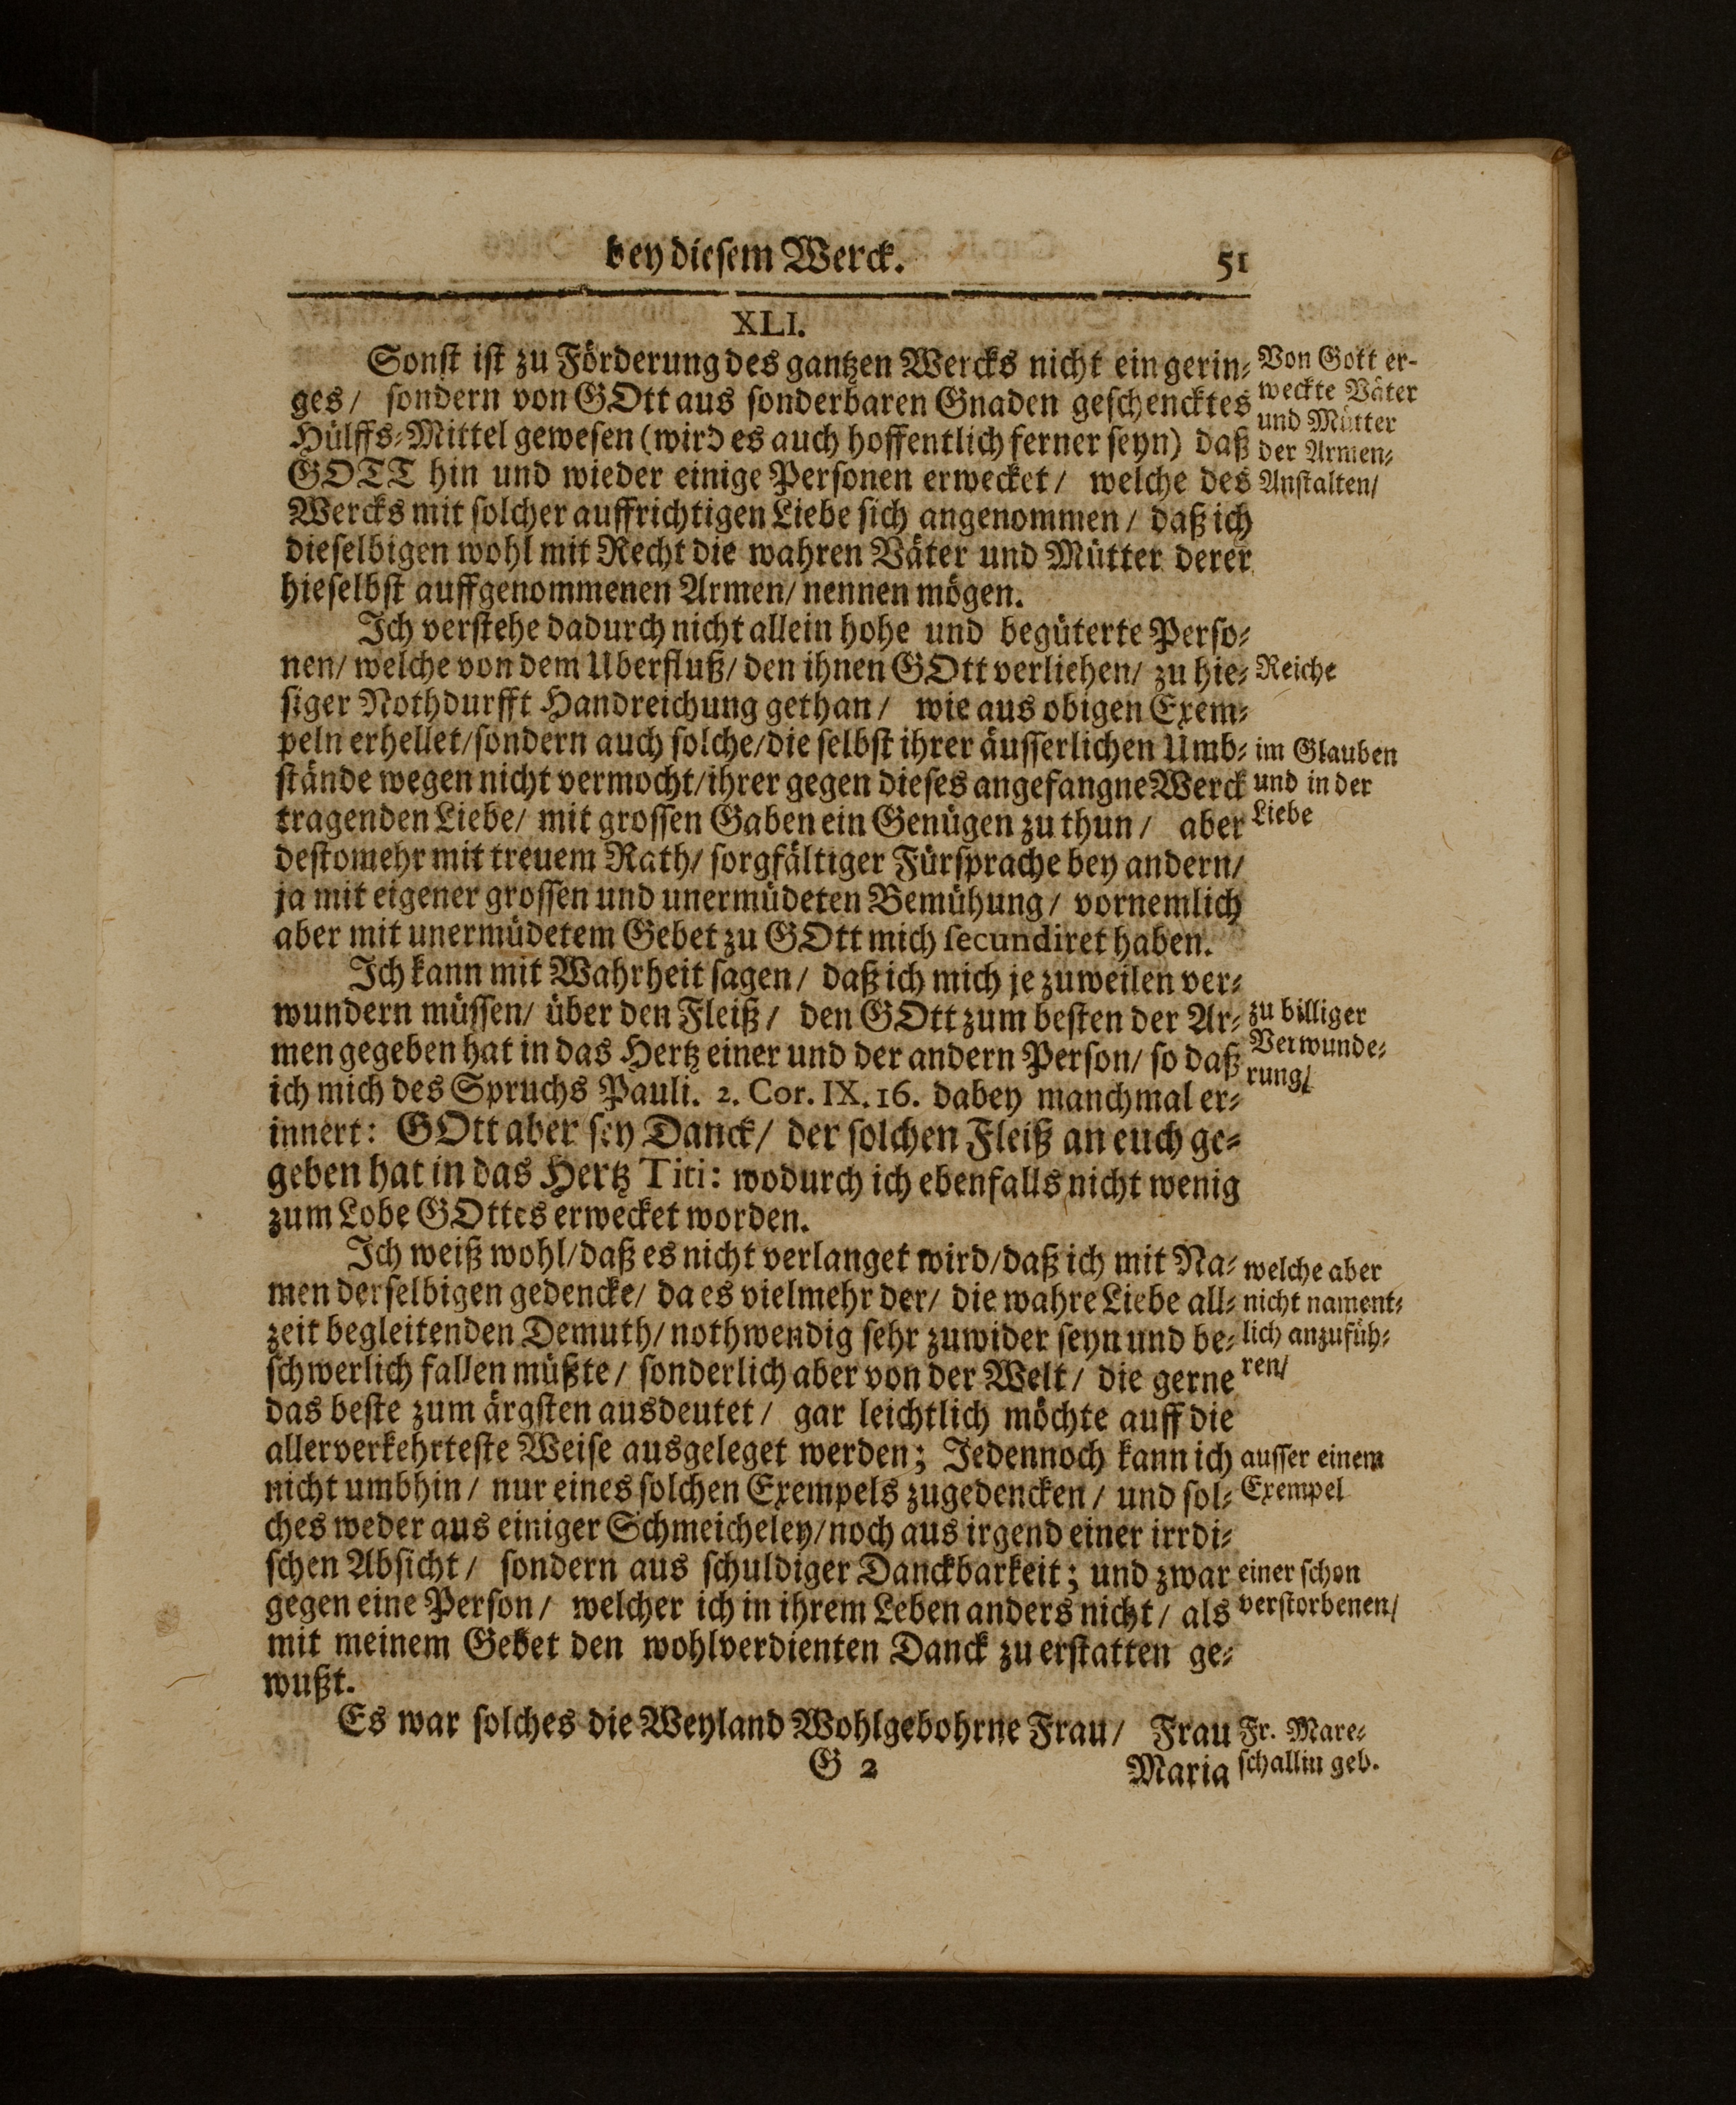 bey diesem Werck. 51
XLI.
Sonst ist zu Förderung des gantzen Wercks nicht ein gerin-
ges/ sondern von GOtt aus sonderbaren Gnaden geschencktes
Hülffs-Mittel gewesen (wird es auch hoffentlich ferner seyn) daß
GOTT hin und wieder einige Personen erwecket/ welche des
Wercks mit solcher auffrichtigen Liebe sich angenommen/ daß ich
dieselbigen wohl mit Recht die wahren Väter und Mütter derer
hieselbst auffgenommenen Armen/ nennen mögen.
Von Gott er-
weckte Väter
und Mütter
der Armen-
Anstalten/
Ich verstehe dadurch nicht allein hohe und begüterte Perso-
nen/ welche von dem Uberfluß/ den ihnen GOtt verliehen/ zu hie-
siger Nothdurfft Handreichung gethan/ wie aus obigen Exem-
peln erhellet/ sondern auch solche/ die selbst ihrer äusserlichen Umb-
stände wegen nicht vermocht/ ihrer gegen dieses angefangne Werck
tragenden Liebe/ mit grossen Gaben ein Genügen zu thun/ aber
destomehr mit treuem Rath/ sorgfältiger Fürsprache bey andern/
ja mit eigener grossen und unermüdeten Bemühung/ vornemlich
aber mit unermüdetem Gebet zu GOtt mich secundiret haben.
Reiche
im Glauben
und in der
Liebe
Ich kann mit Wahrheit sagen/ daß ich mich je zuweilen ver-
wundern müssen/ über den Fleiß/ den GOtt zum besten der Ar-
men gegeben hat in das Hertz einer und der andern Person/ so daß
ich mich des Spruchs Pauli. 2. Cor. IX. 16. dabey manchmal er-
innert: GOtt aber sey Danck/ der solchen Fleiß an euch ge-
geben hat in das Hertz Titi: wodurch ich ebenfalls nicht wenig
zum Lobe GOttes erwecket worden.
zu billiger
Verwunde-
rung/
Ich weiß wohl/ daß es nicht verlanget wird/ daß ich mit Na-
men derselbigen gedencke/ da es vielmehr der/ die wahre Liebe all-
zeit begleitenden Demuth/ nothwendig sehr zuwider seyn und be-
schwerlich fallen müßte/ sonderlich aber von der Welt/ die gerne
das beste zum ärgsten ausdeutet/ gar leichtlich möchte auff die
allerverkehrteste Weise ausgeleget werden; Jedennoch kann ich
nicht umbhin/ nur eines solchen Exempels zugedencken/ und sol-
ches weder aus einiger Schmeicheley/ noch aus irgend einer irrdi-
schen Absicht/ sondern aus schuldiger Danckbarkeit; und zwar
gegen eine Person/ welcher ich in ihrem Leben anders nicht/ als
mit meinem Gebet den wohlverdienten Danck zu erstatten ge-
wußt.
welche aber
nicht nament-
lich anzufüh-
ren/
ausser einem
Exempel
einer schon
verstorbenen/
Es war solches die Weyland Wohlgebohrne Frau/ Frau
Fr. Mare-
schallin geb.
G 2 Maria